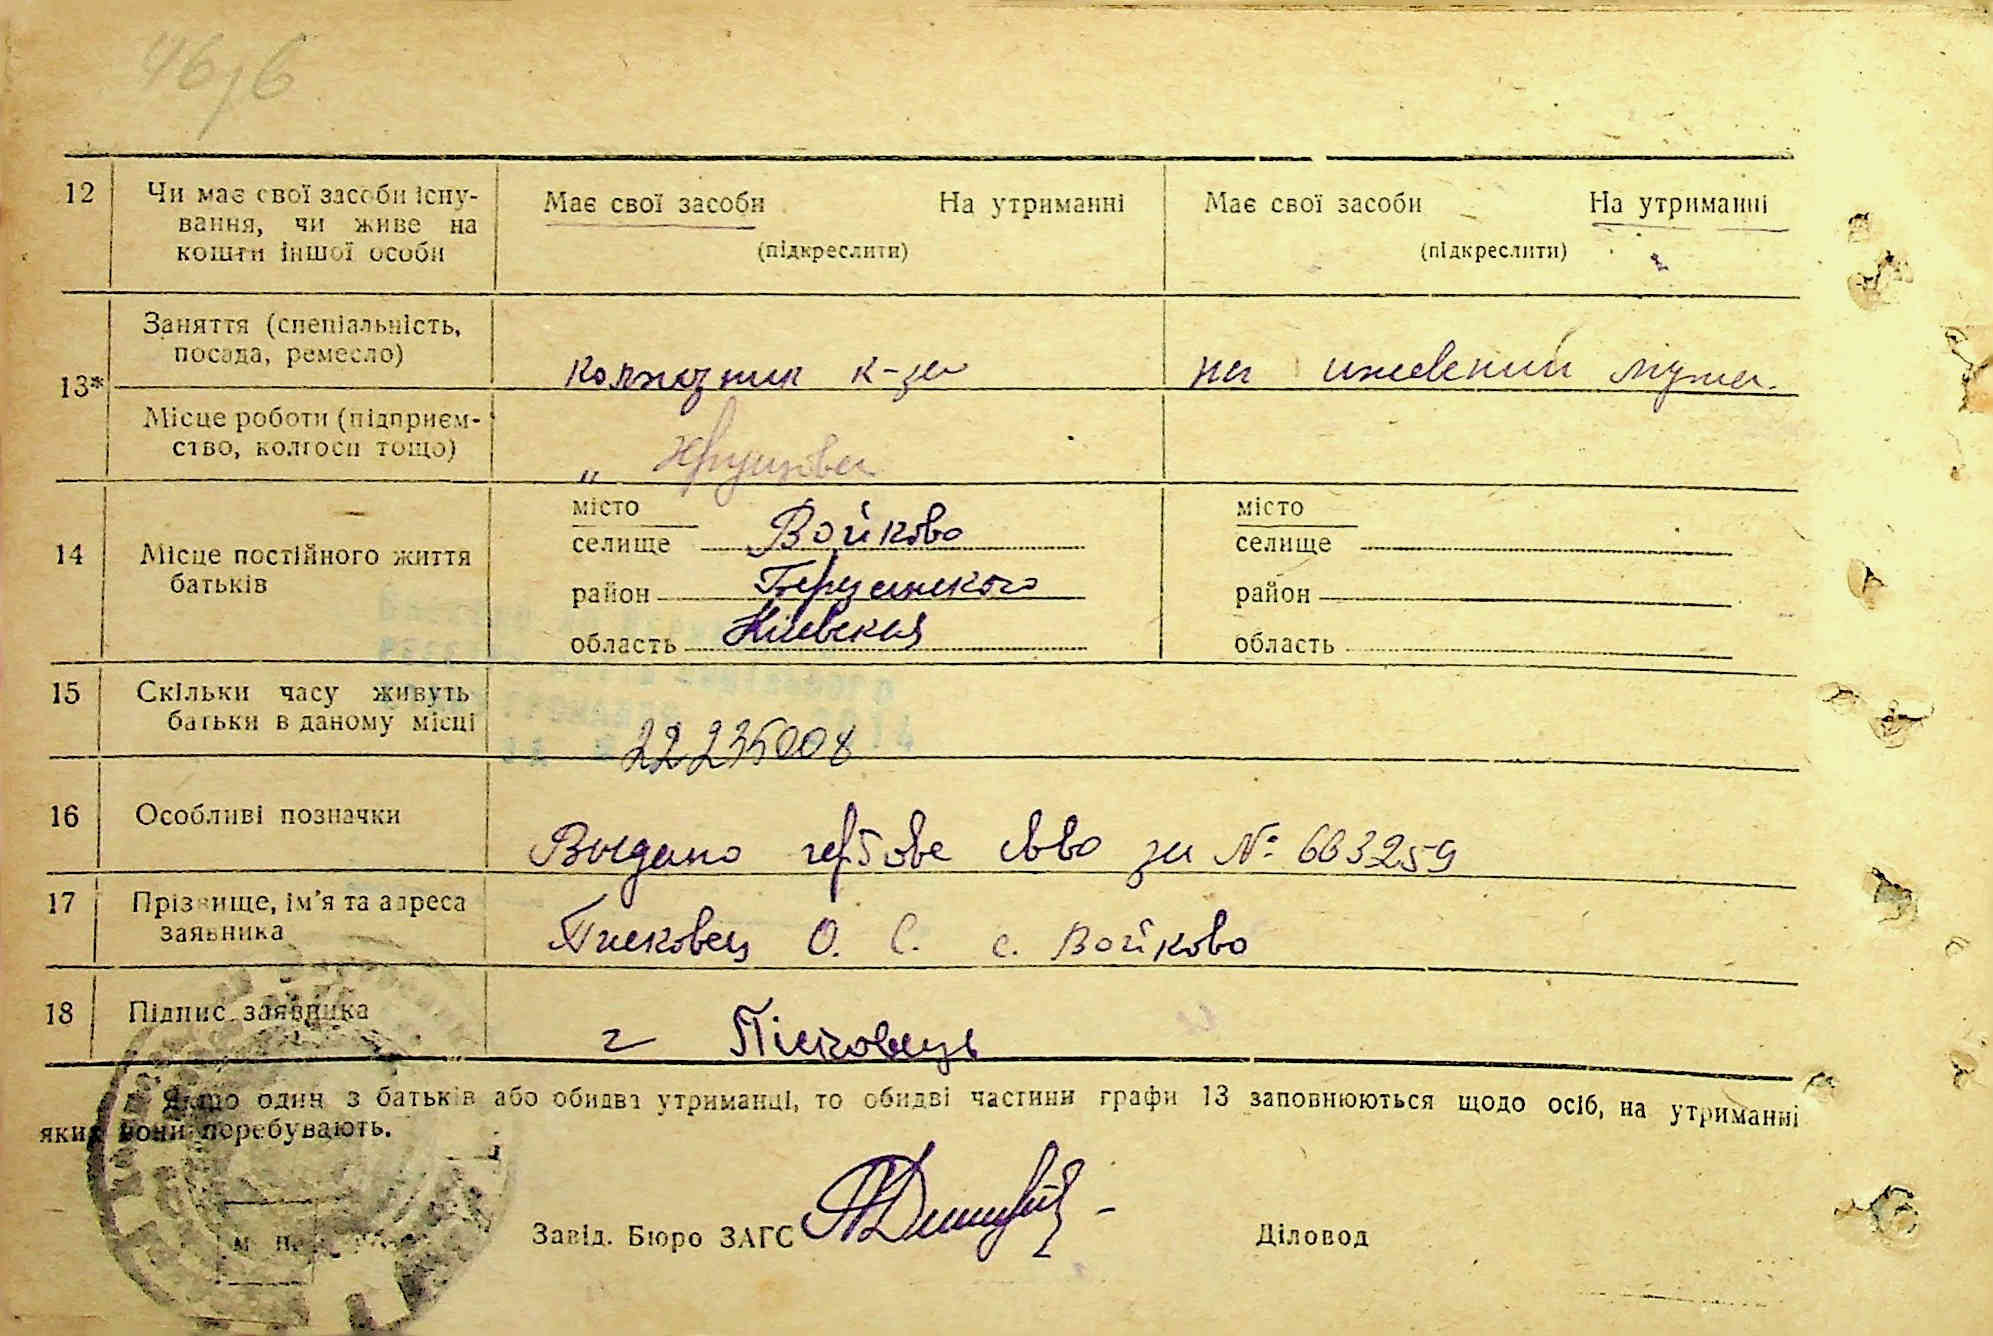 46/6
12 Чи має свої засоби існу-
вання, чи живе на
кошти іншої особи
Має свої засоби На утриманні
(підкреслити)
Має свої засоби На утриманні
(підкреслити)
13*
Заняття (спеціальність,
посада, ремесло)
колхозник к-за
на ижевении мужа.
Місце роботи (підприєм-
ство, колгосп тощо)
„ Хрущова
14 Місце постійного життя
батьків
місто
селище Войково
район
область Киевская
місто
селище
район
область
15 Скільки часу живуть
батьки в даному місці
22235008
16 Особливі позначки
Выдано гербове св-во за № 603259
17 Прізвище, ім'я та адреса
заявника
Писковец О. С. с. Войково
18 Підпис заявника
г Пісковець
Якщо один з батьків або обидва утриманці, то обидві частини графи 13 заповнюються щодо осіб, на утриманні
яких вони перебувають.
Завід. Бюро ЗАГС
Діловод